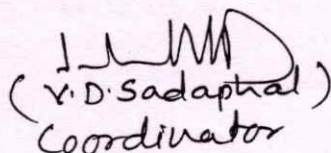 (V.D. Sadaphal)
Coordinator